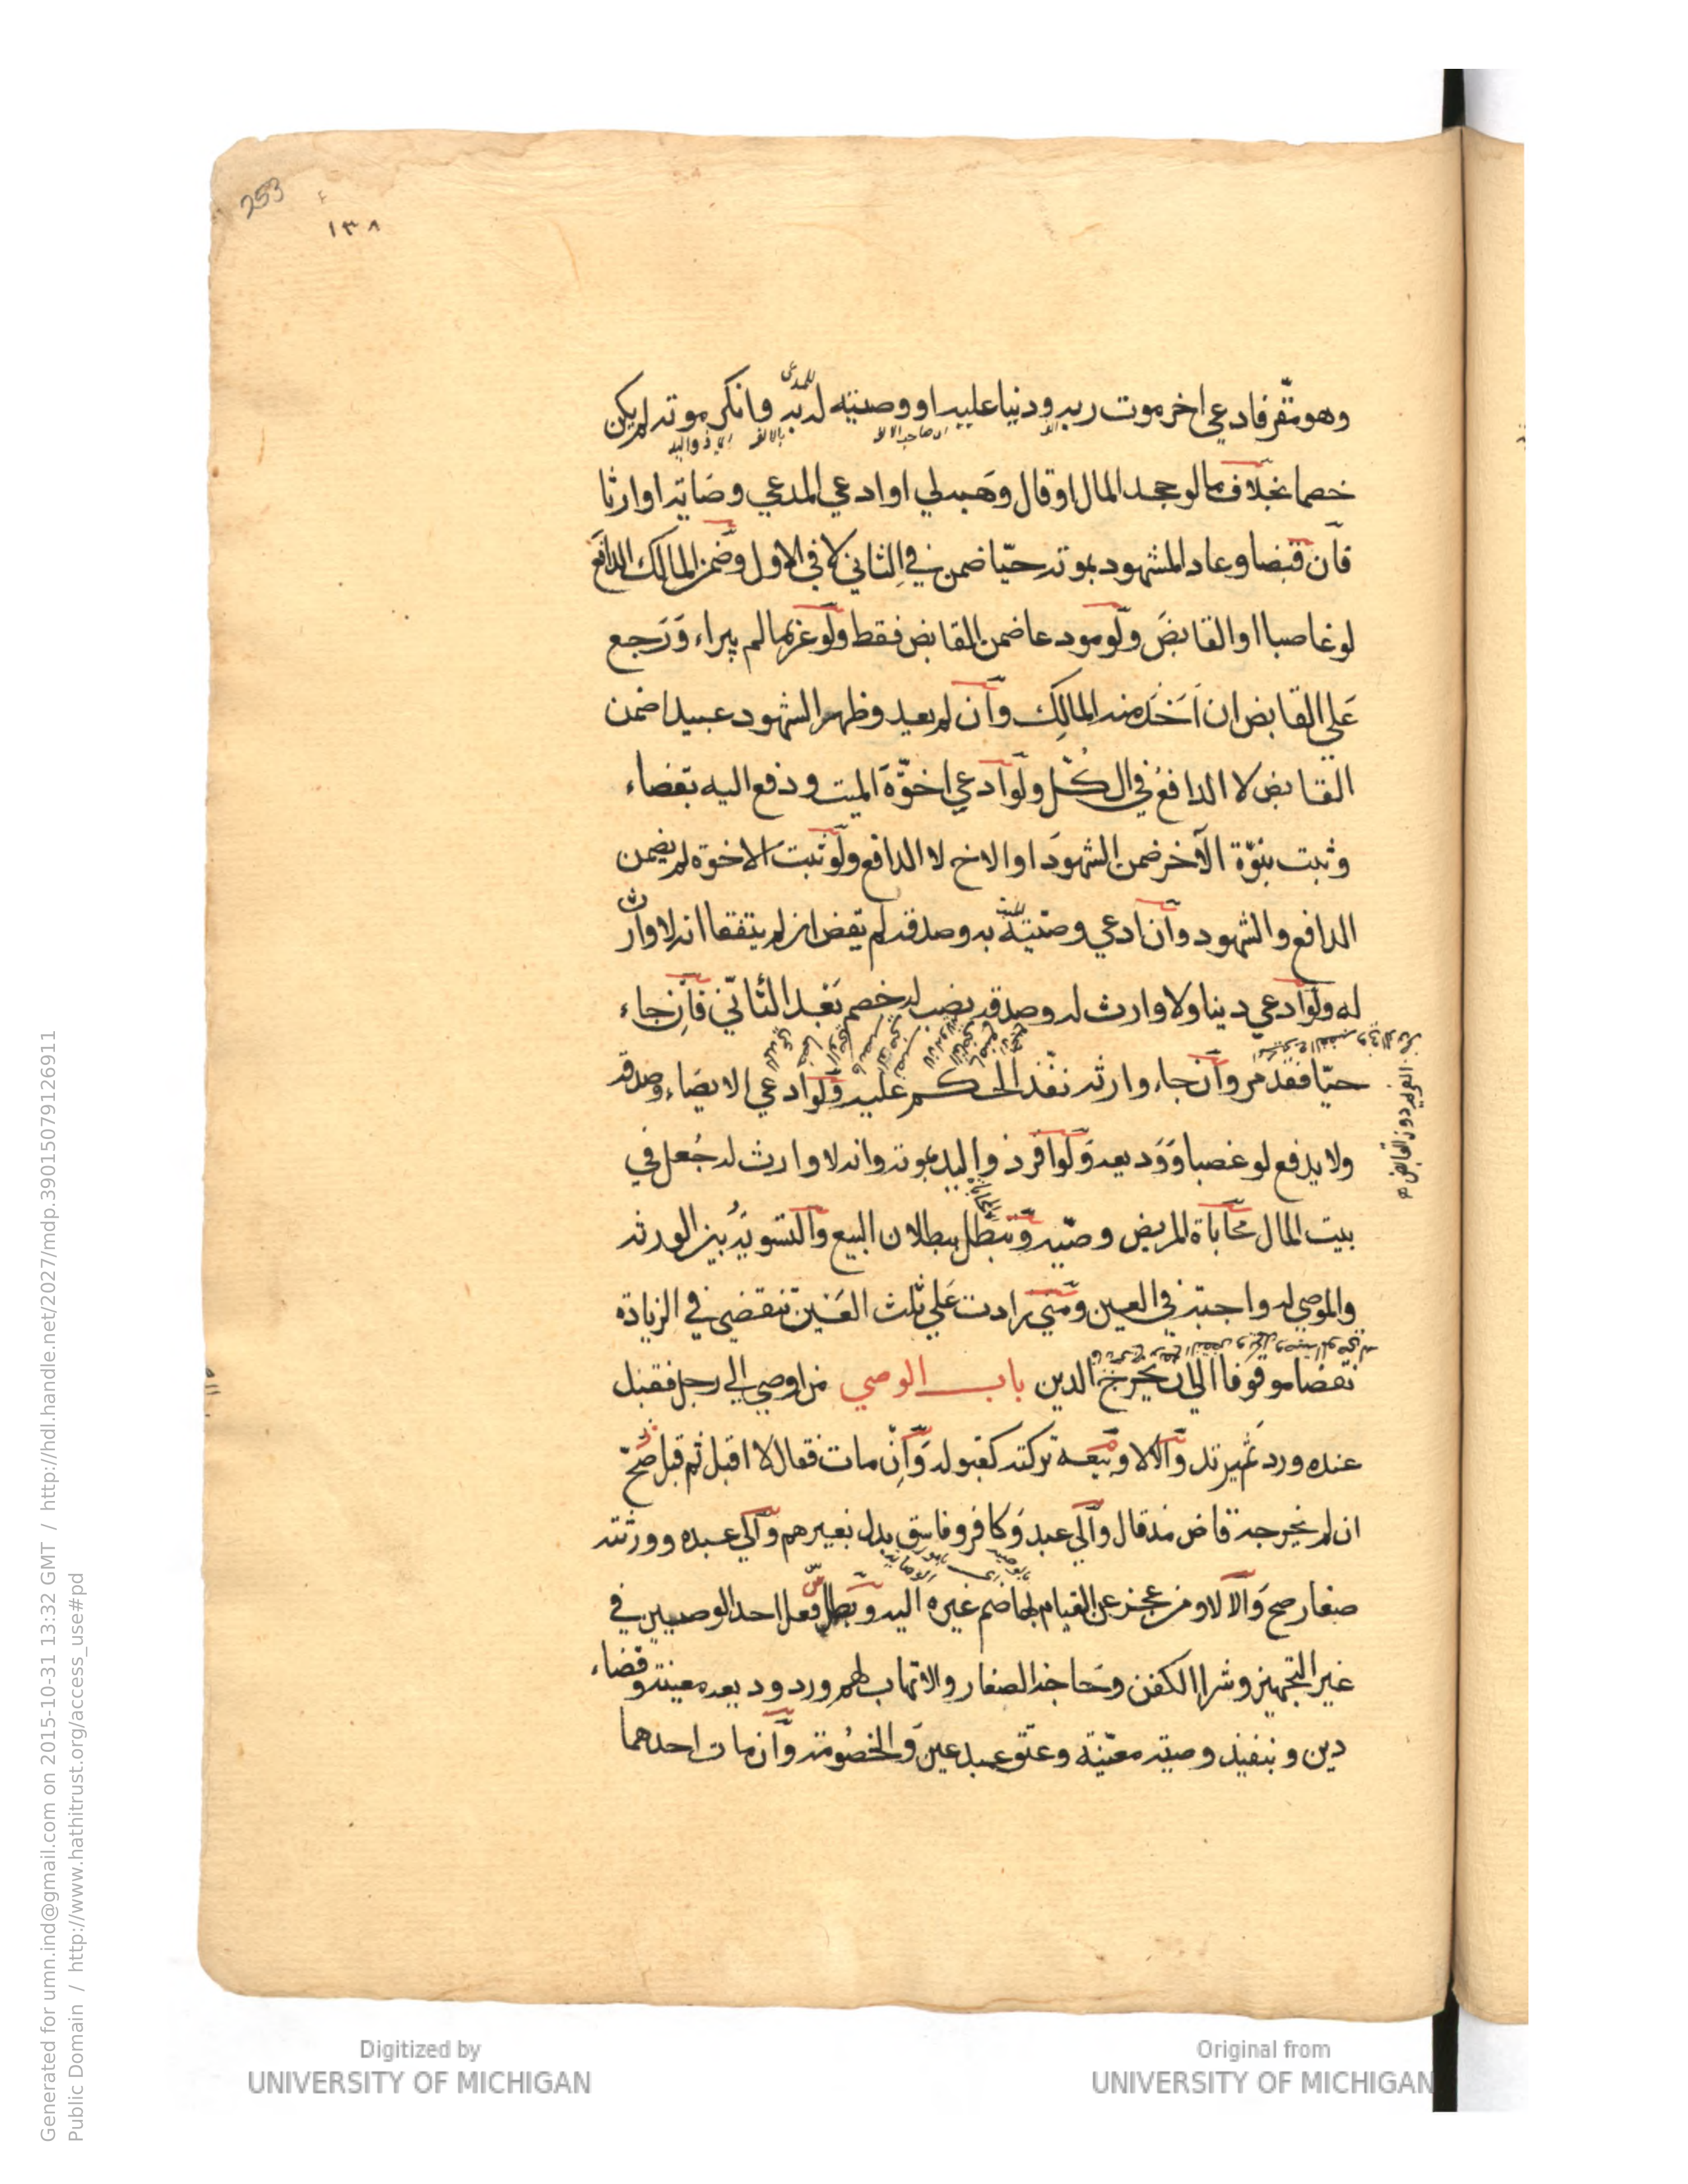 253
١٣٨
وهو مقر فادعي اخر موت ربه ودينا عليه او وصيته له به وانكر موته لم يكن
للمدعي
خصما بخلاف ما لو جحد المال او قال وهبه لي او ادعي المدعي وصايته او ارثا
فان قبضا وعاد المشهود بموته حيا ضمن في الثاني لا في الاول وضمن المالك الدافع
لو غاصبا او القابض ولو مودعا ضمن القابض فقط ولو غريما لم يبراء ورجع
علي القابض ان اخذ منه المالك وان لم يعد وظهر الشهود عبيدا ضمن
القابض لا الدافع في الكل ولو ادعي اخوة الميت ودفع اليه بقضاء
وثبت بنوة الاخر ضمن الشهود او الاخ لا الدافع ولو ثبت الاخوة لم يضمن
الدافع والشهود وان ادعي وصية به وصدقه لم يقض ان لم يتفقا انه لا وارث
له ولو ادعي دينا ولا وارث له وصدقه نصب له خصم بعد التاني فان جاء
حيا فقد مر وان جاء وارثه نفذ الحكم عليه ولو ادعي الايصاء وصدقه
الغريم دون القابض
ولا يدفع لو غصبا ووديعة ولو اقر ذو اليد بموته وانه لا وارث له جعل في
بيت المال محاباة المريض وصية وتبطل ببطلان البيع والتسوية بين الورثة
والموصي له واجبة في العين ومتي زادت علي ثلث العين تنقضي في الزيادة
نقضا موقوفا الي ان يخرج الدين باب الوصي من اوصي الي رجل فقبل
عنده ورد ثم يرتد والا لا وبيعه تركته كقبوله وان مات فقال لا اقبل ثم قبل صح
ان لم يخرجه قاض منذ قال والي عبد وكافر وفاسق بدل بغيرهم والي عبده وورثته
صغار صح والا لا ومن عجز عن القيام بها ضم غيره اليه وبطل فعل احد الوصيين في
غير التجهيز وشرا الكفن وحاجة الصغار والاتهاب لهم ورد وديعة معينة وقضاء
دين وتنفيذ وصية معينة وعتق عبد عين والخصومة وان مات احدهما
Digitized by
UNIVERSITY OF MICHIGAN
Original from
UNIVERSITY OF MICHIGAN
Generated for umn.ind@gmail.com on 2015-10-31 13:32 GMT / http://hdl.handle.net/2027/mdp.39015079126911
Public Domain / http://www.hathitrust.org/access_use#pd